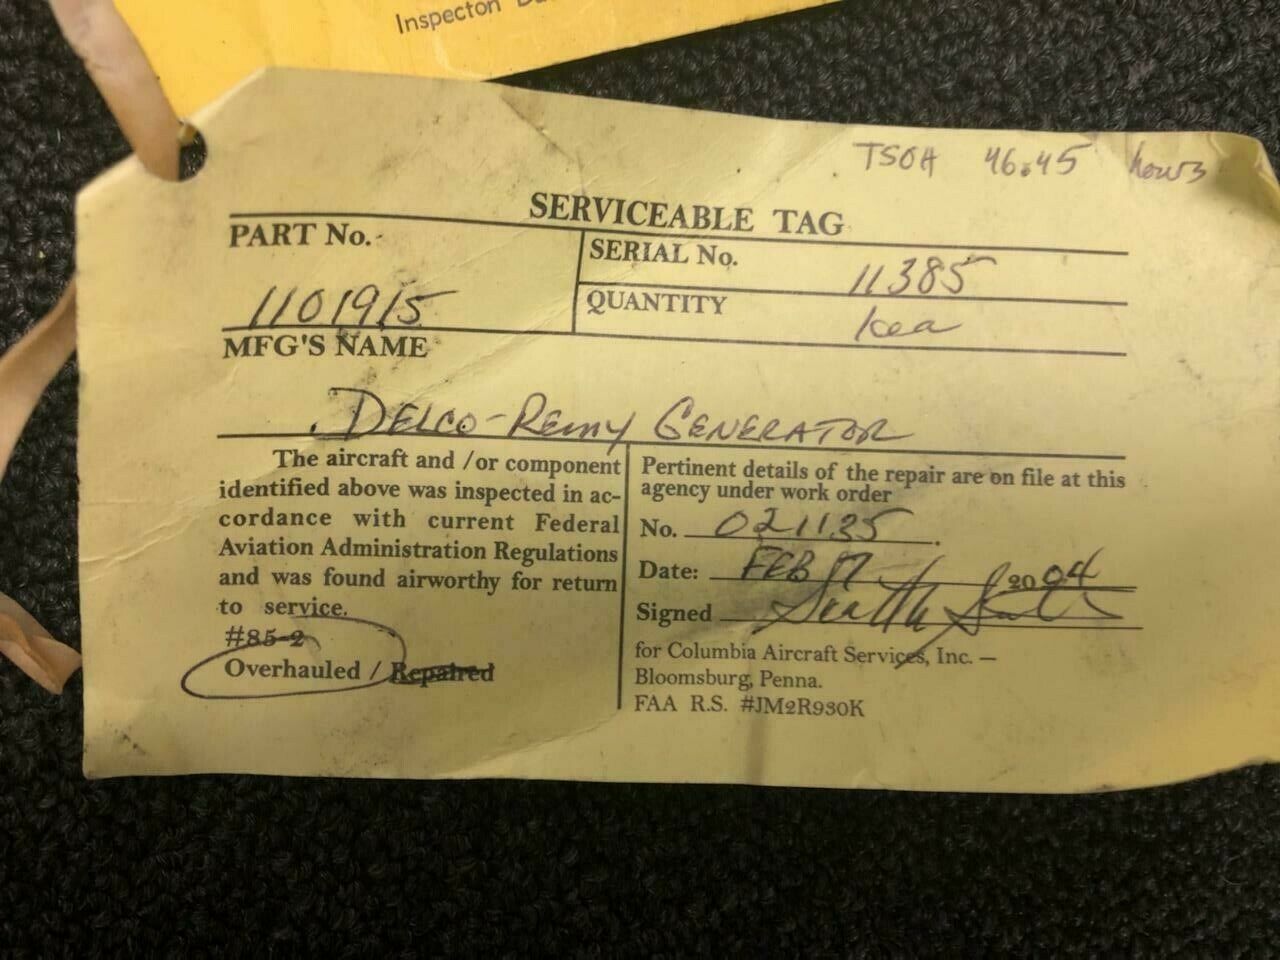 Inspecton
TSOH 46.45 hours
SERVICEABLE TAG
PART No.
1101915
SERIAL No. 11385
QUANTITY 1 ea
MFG'S NAME
DELCO-REMY GENERATOR
The aircraft and /or component
identified above was inspected in ac-
cordance with current Federal
Aviation Administration Regulations
and was found airworthy for return
to service.
#85-2
Overhauled / Repaired
Pertinent details of the repair are on file at this
agency under work order
No. 021135.
Date: FEB 17 2004
Signed
for Columbia Aircraft Services, Inc. —
Bloomsburg, Penna.
FAA R.S. #JM2R930K